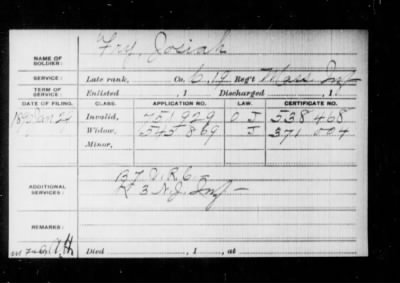 NAME OF SOLDIER: Fry, Josiah
SERVICE: Late rank, Co. 6, 19 Reg't Mass Inf
TERM OF SERVICE: Enlisted , 1 Discharged , 1
DATE OF FILING. CLASS. APPLICATION NO. LAW. CERTIFICATE NO.
Jan 24 Invalid, 751929 J 538468
Widow, 545869 J 371004
Minor,
137 V.R.C.
ADDITIONAL SERVICES: K 3 N.J. Inf
REMARKS:
Died , 1 , at